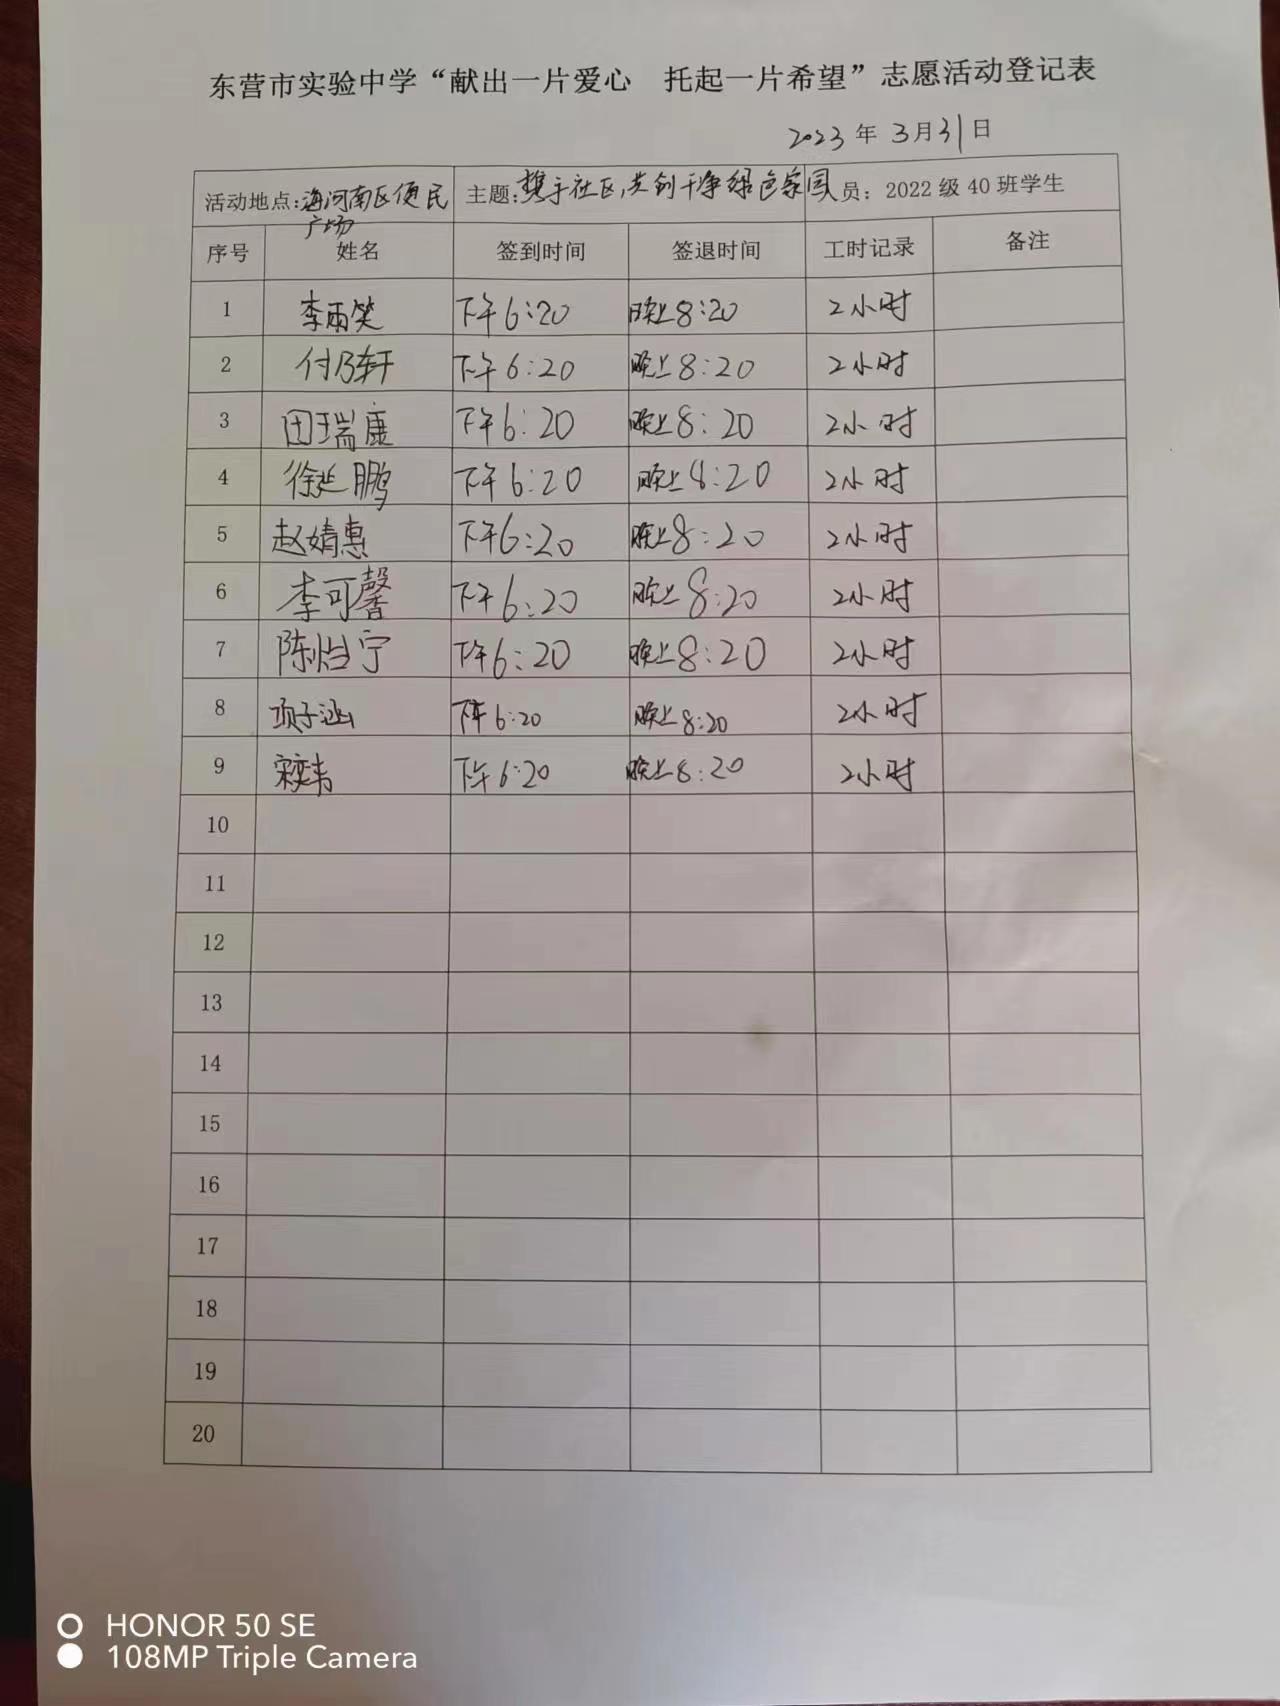 东营市实验中学“献出一片爱心 托起一片希望”志愿活动登记表
2023年3月31日
活动地点:海河南区便民广场 主题:携手社区,共创干净绿色家园 员:2022级40班学生
序号 姓名 签到时间 签退时间 工时记录 备注
1 李雨笑 下午6:20 晚上8:20 2小时
2 付乃轩 下午6:20 晚上8:20 2小时
3 田瑞康 下午6:20 晚上8:20 2小时
4 徐延鹏 下午6:20 晚上8:20 2小时
5 赵婧惠 下午6:20 晚上8:20 2小时
6 李可馨 下午6:20 晚上8:20 2小时
7 下午6:20 晚上8:20 2小时
8 项子涵 下午6:20 晚上8:20 2小时
9 下午6:20 晚上8:20 2小时
10
11
12
13
14
15
16
17
18
19
20
HONOR 50 SE
108MP Triple Camera